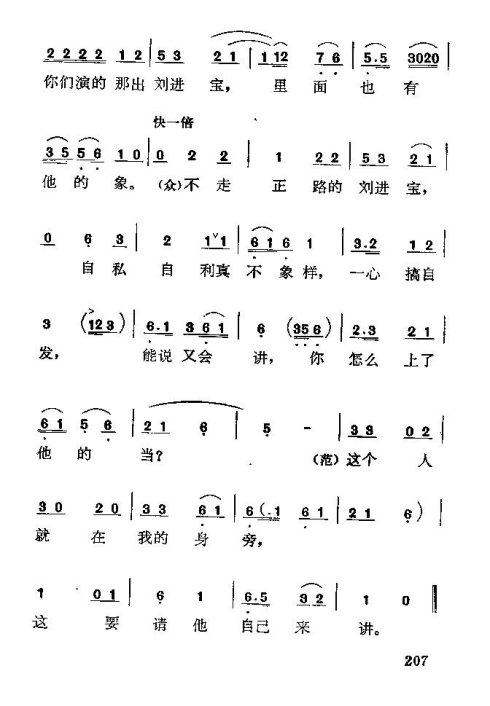 2222 12 | 53 21 | 112 76 | 5.5 3020 |
你们演的那出刘进宝，里面也有
快一倍
3556 10 | 0 2 2 | 1 22 | 53 21 |
他的象。(众)不走正路的刘进宝，
0 6 3 | 2 1ˇ1 | 616 1 | 3.2 12 |
自私自利真不象样，一心搞自
3 (123) | 6.1 361 | 6 (356) | 2.3 21 |
发，能说又会讲，你怎么上了
61 56 | 21 6 | 5 - | 33 02 |
他的当？(范)这个人
30 20 | 33 61 | 6(.1 61 | 21 6) |
就在我的身旁，
1 01 | 6 1 | 6.5 32 | 1 0 ‖
这要请他自己来讲。
207